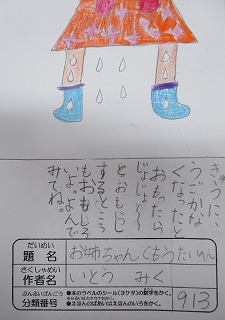 きゅうに、
うごかな
くなったと
おもったら
じょじょ～
とおもらし
するところ
もおもしろ
いよ。よんで
みてね。
だいめい
題名
お姉ちゃんてもうたいへん
さくしゃめい
作者名
いとう みく
ぶんるいばんごう
分類番号
●本のラベルのシール(3ケタ)の数字をかく。
●えほんのばあいはえほんのいろをかく。
913